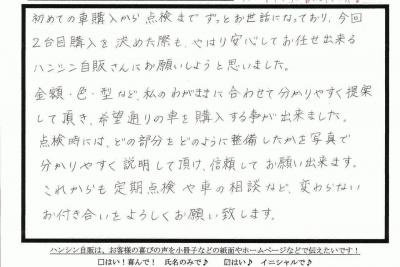 初めての車購入から点検まで ずっとお世話になっており、今回
2台目購入を決めた際も、やはり安心してお任せ出来る
ハンシン自販さんにお願いしようと思いました。
金額・色・型など、私のわがままに合わせて分かりやすく提案
して頂き、希望通りの車を購入する事が出来ました。
点検時には、どの部分をどのように整備したかを写真で
分かりやすく説明して頂け、信頼してお願い出来ます。
これからも定期点検や車の相談など、変わらない
お付き合いをよろしくお願い致します。
ハンシン自販は、お客様の喜びの声を小冊子などの紙面やホームページなどで伝えたいです！
□はい！喜んで！ 氏名のみで♪ ☑はい♪ イニシャルで♪